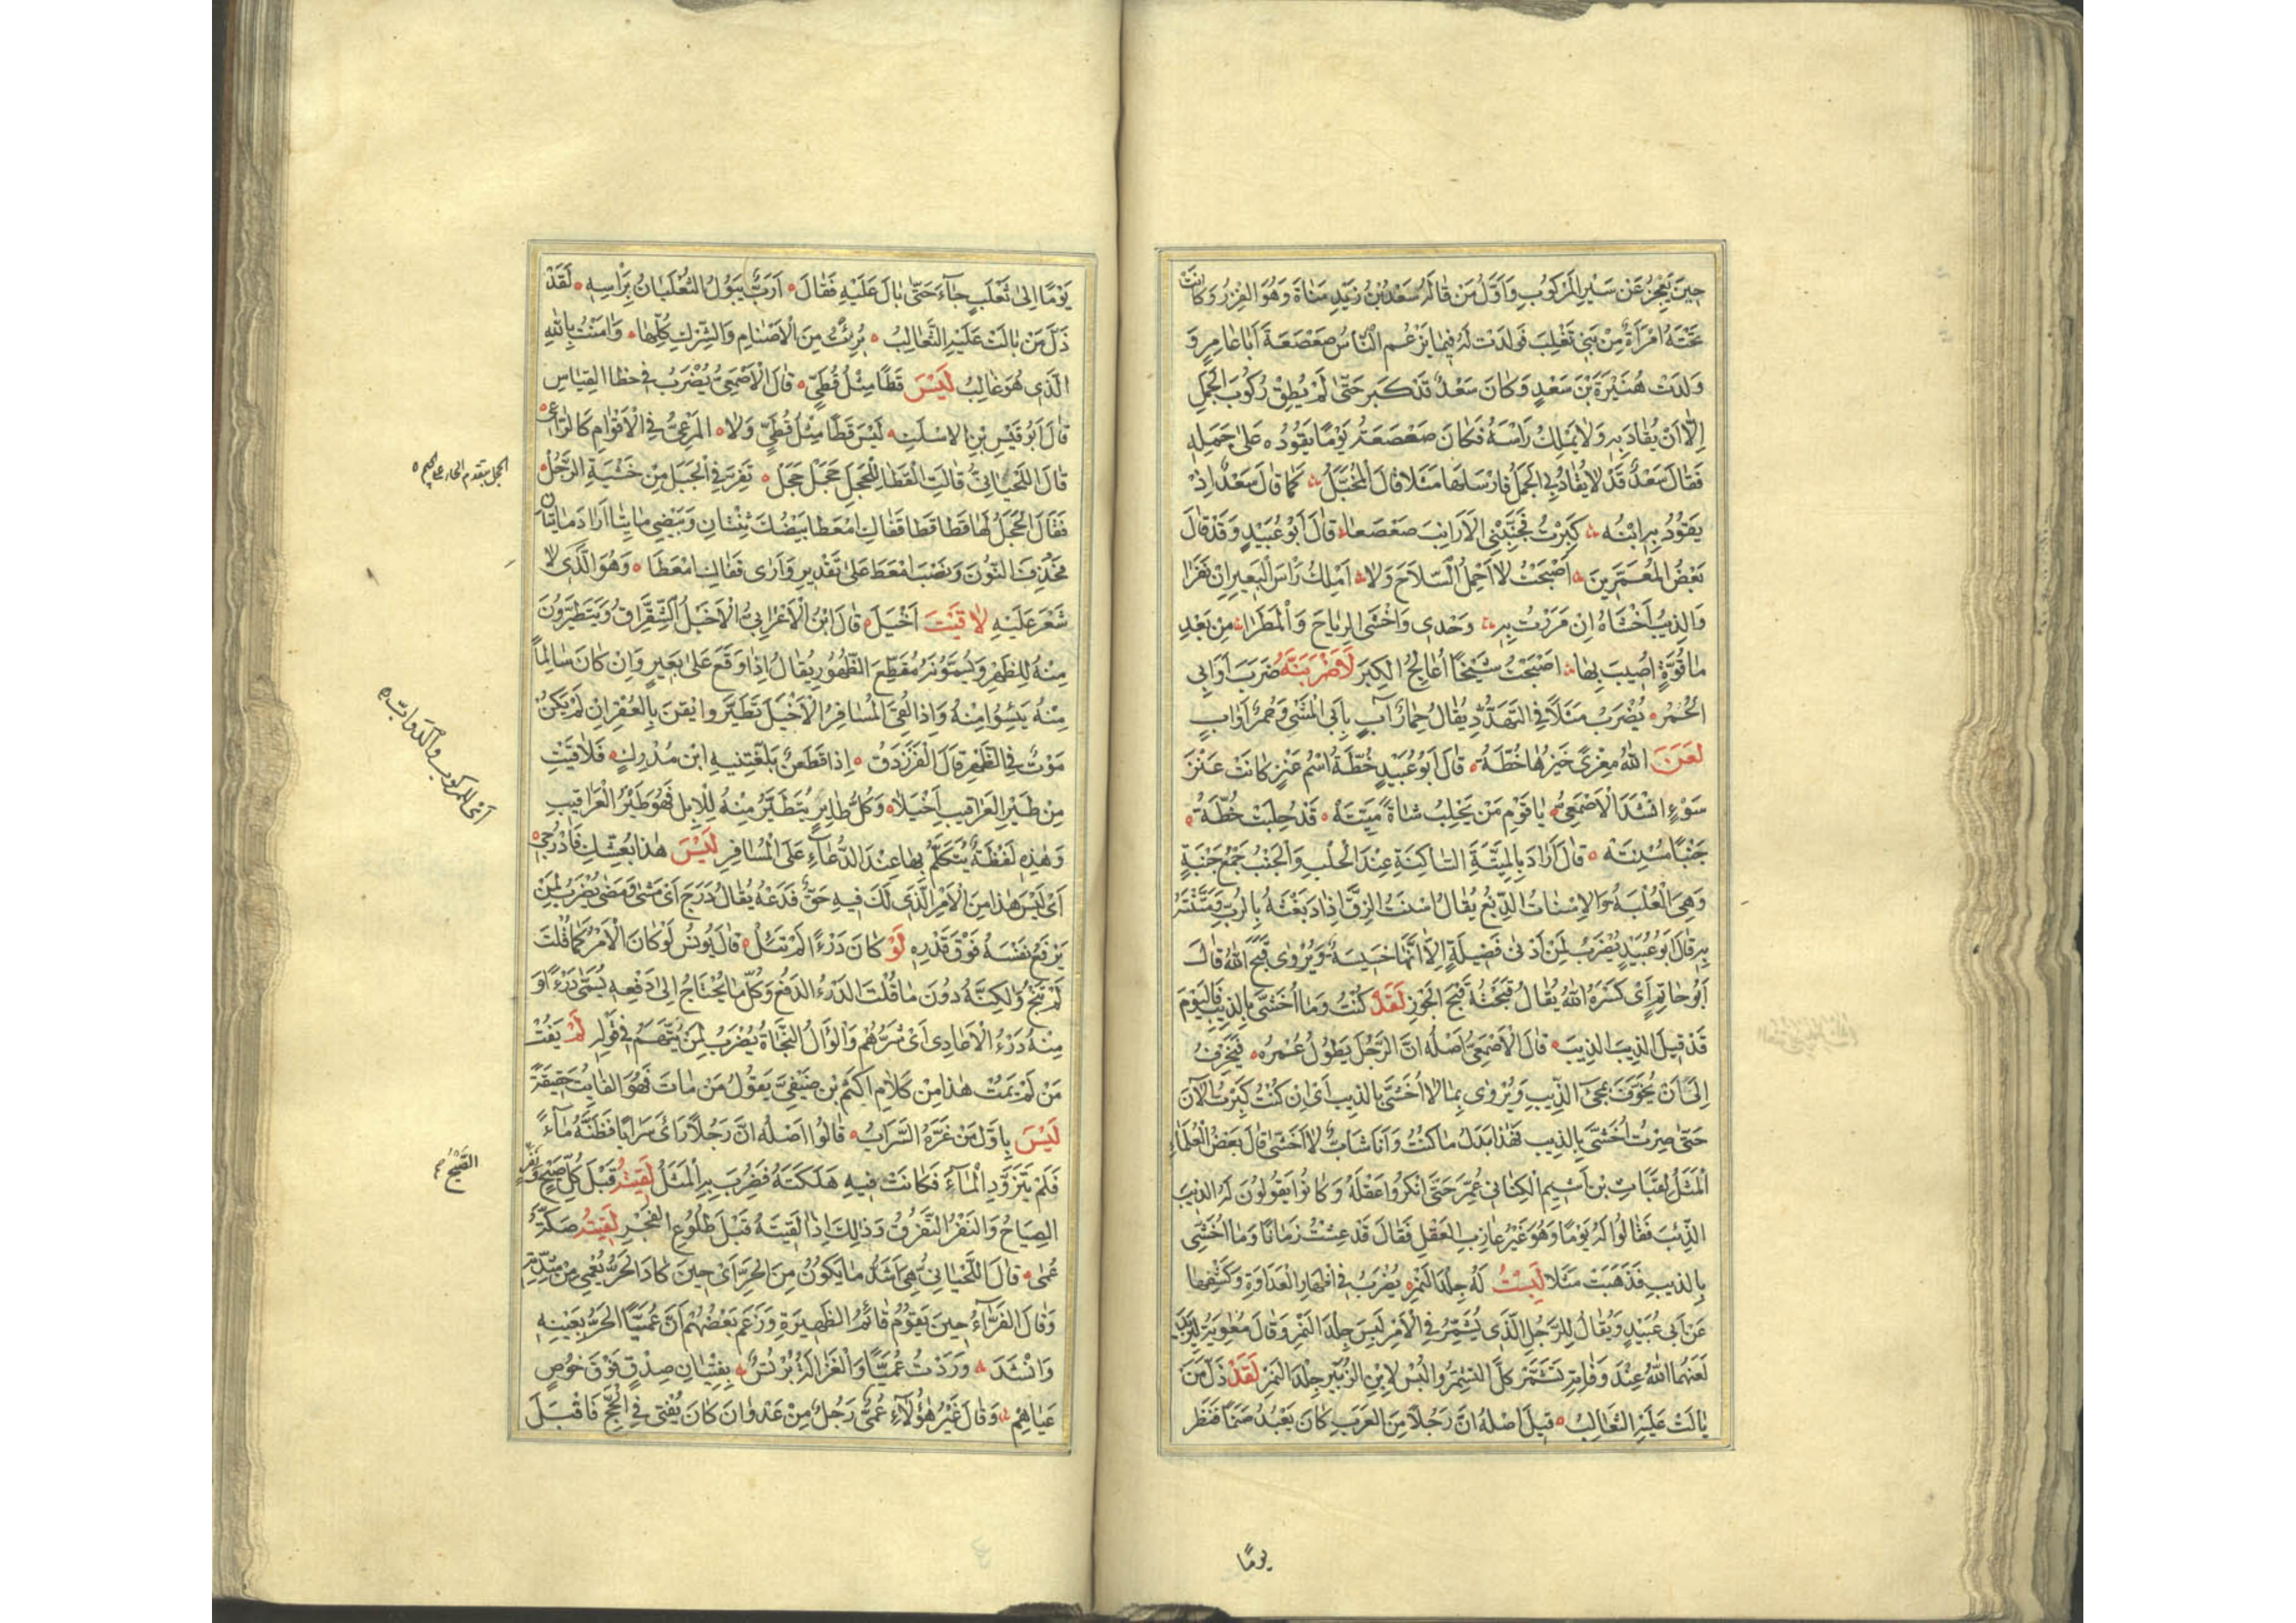 حِينَ يَعْجِزُ عَنْ سَيْرِ الْمَرْكُوبِ وَاَوَّلُ مَنْ قَالَهُ سَعْدُ بْنُ زَيْدِ مَنَاةَ وَهُوَ الْفِزْرُ وَكَانَتْ
تَحْتَهُ امْرَاَةٌ مِنْ بَنِي تَغْلِبَ فَوَلَدَتْ لَهُ فِيمَا يَزْعُمُ النَّاسُ صَعْصَعَةَ اَبَا عَامِرٍ وَ
وَلَدَتْ هُبَيْرَةَ بْنَ سَعْدٍ وَكَانَ سَعْدٌ قَدْ كَبِرَ حَتّٰى لَمْ يُطِقْ رُكُوبَ الْجَمَلِ
اِلَّا اَنْ يُقَادَ بِهِ وَلَا يَمْلِكُ رَاْسَهُ فَكَانَ صَعْصَعَةُ يَوْمًا يَقُودُهُ عَلٰى جَمَلِهِ
فَقَالَ سَعْدٌ قَدْ لَا يُقَادُ بِيَ الْجَمَلُ فَاَرْسَلَهَا مَثَلًا قَالَ الْمُخَبَّلُ كَمَا قَالَ سَعْدٌ اِذْ
يَقُودُ بِهِ ابْنُهُ كَبِرْتُ فَجَنِّبْنِي الْاَرَانِبَ صَعْصَعَا قَالَ اَبُو عُبَيْدٍ وَقَدْ قَالَ
بَعْضُ الْمُعَمَّرِينَ اَصْبَحْتُ لَا اَحْمِلُ السِّلَاحَ وَلَا اَمْلِكُ رَاْسَ الْبَعِيرِ اِنْ نَفَرَا
وَالذِّيبَ اَخْشَاهُ اِنْ مَرَرْتُ بِهِ وَحْدِي وَاَخْشَى الرِّيَاحَ وَالْمَطَرَا مِنْ بَعْدِ
مَا قُوَّةٍ اُصِيبَ بِهَا اَصْبَحْتُ شَيْخًا اُعَالِجُ الْكِبَرَ لَاَضْرِبَنَّهُ ضَرْبَ اَوَابِي
الْحُمُرِ يُضْرَبُ مَثَلًا فِي التَّهَدُّدِ يُقَالُ حِمَارٌ آبٍ يَاْبَى الْمَشْيَ وَحُمُرٌ اَوَابٍ
لَعَنَ اللّٰهُ مِعْزًى خَيْرُهَا خُطَّةُ قَالَ اَبُو عُبَيْدٍ خُطَّةُ اسْمُ عَنْزٍ كَانَتْ عَنْزَ
سَوْءٍ اَنْشَدَ الْاَصْمَعِيُّ يَا قَوْمِ مَنْ يَحْلِبُ شَاةً مَيِّتَهْ قَدْ حُلِبَتْ خُطَّةُ
جَنْبًا مُسْنِتَهْ قَالَ اَرَادَ بِالْمَيِّتَةِ السَّاكِنَةِ عِنْدَ الْحَلْبِ وَالْجَنْبُ جَمْعُ جَنْبَةٍ
وَهِيَ الْعُلْبَةُ وَالْاِسْنَاتُ الدَّبْغُ يُقَالُ اَسْنَتَ الزِّقَّ اِذَا دَبَغَهُ بِالرُّبِّ
بِهِ قَالَ اَبُو عُبَيْدٍ يُضْرَبُ لِمَنْ اَدْنٰى فَضِيلَةٍ اِلَّا اَنَّهَا خَسِيسَةٌ وَيُرْوٰى قَبَّحَ اللّٰهُ قَالَ
اَبُو حَاتِمٍ اَيْ كَسَرَهُ اللّٰهُ يُقَالُ قَبَحْتُهُ قَبْحَ الْجَوْزِ لَقَدْ كُنْتُ وَمَا اُخَشّٰى بِالذِّيبِ فَالْيَوْمَ
قَدْ قِيلَ الذِّيبَ الذِّيبَ قَالَ الْاَصْمَعِيُّ اَصْلُهُ اَنَّ الرَّجُلَ يَطُولُ عُمْرُهُ فَيَخْرَفُ
اِلَى اَنْ يُخَوَّفَ بِمَجِيءِ الذِّيبِ وَيُرْوٰى بِمَا لَا اُخَشّٰى بِالذِّيبِ اَيْ اِنْ كُنْتُ كَبِرْتُ الْآنَ
حَتّٰى صِرْتُ اُخَشّٰى بِالذِّيبِ فَهٰذَا بَدَلُ مَا كُنْتُ وَاَنَا شَابٌّ لَا اُخَشّٰى قَالَ بَعْضُ الْعُلَمَاءِ
الْمَثَلُ لِقَبَاثِ بْنِ اَشْيَمَ الْكِنَانِيِّ عُمِّرَ حَتّٰى اَنْكَرُوا عَقْلَهُ وَكَانُوا يَقُولُونَ لَهُ الذِّيبَ
الذِّئْبَ فَقَالُوا لَهُ يَوْمًا وَهُوَ غَيْرُ عَازِبِ الْعَقْلِ فَقَالَ قَدْ عِشْتُ زَمَانًا وَمَا اُخَشّٰى
بِالذِّيبِ فَذَهَبَتْ مَثَلًا لَبِسْتُ لَهُ جِلْدَ النَّمِرِ يُضْرَبُ فِي اِظْهَارِ الْعَدَاوَةِ وَكَشْفِهَا
عَنْ اَبِي عُبَيْدٍ وَيُقَالُ لِلرَّجُلِ الَّذِي يُشَمِّرُ فِي الْاَمْرِ لَبِسَ جِلْدَ النَّمِرِ وَقَالَ مُعٰوِيَةُ لِيَزِيدَ
لَعَنَهُمَا اللّٰهُ عِنْدَ وَفَاتِهِ تَشَمَّرْ كُلَّ التَّشَمُّرِ وَالْبَسْ لِابْنِ الزُّبَيْرِ جِلْدَ النَّمِرِ لَقَدْ ذَلَّ مَنْ
بَالَتْ عَلَيْهِ الثَّعَالِبُ قِيلَ اَصْلُهُ اَنَّ رَجُلًا مِنَ الْعَرَبِ كَانَ يَعْبُدُ صَنَمًا فَنَظَرَ
يومًا
يَوْمًا اِلٰى ثَعْلَبٍ جَاءَ حَتّٰى بَالَ عَلَيْهِ فَقَالَ اَرَبٌّ يَبُولُ الثَّعْلَبَانُ بِرَاْسِهِ لَقَدْ
ذَلَّ مَنْ بَالَتْ عَلَيْهِ الثَّعَالِبُ بَرِئْتُ مِنَ الْاَصْنَامِ وَالشِّرْكِ كُلِّهَا وَاٰمَنْتُ بِاللّٰهِ
الَّذِي هُوَ غَالِبُ لَيْسَ قَطًا مِثْلَ قُطَيٍّ قَالَ الْاَصْمَعِيُّ يُضْرَبُ فِي خَطَاِ الْقِيَاسِ
قَالَ اَبُو قَيْسِ بْنِ الْاَسْلَتِ لَيْسَ قَطًا مِثْلَ قُطَيٍّ وَلَا الْمَرْعِيُّ فِي الْاَقْوَامِ كَالرَّاعِي
قَالَ اللِّحْيَانِيُّ قَالَتِ الْقَطَا لِلْحَجَلِ حَجَلْ حَجَلْ تَفِرُّ فِي الْجَبَلِ مِنْ خَشْيَةِ الرَّجُلِ
الحجل بتقديم الحاء على الجيم
فَقَالَ الْحَجَلُ لَهَا قَطَا قَطَا قَفَاكِ اَمْعَطَا بَيْضُكَ ثِنْتَانِ وَبَيْضِي مَايَتَا اَرَادَ مَايَتَانِ
فَحَذَفَ النُّونَ وَنَصَبَ اَمْعَطَ عَلٰى تَقْدِيرِ وَاَرٰى قَفَاكِ اَمْعَطَا وَهُوَ الَّذِي لَا
شَعْرَ عَلَيْهِ لَاقَيْتَ اَخْيَلَ قَالَ ابْنُ الْاَعْرَابِيِّ الْاَخْيَلُ الشِّقِرَّاقُ وَيَتَطَيَّرُونَ
مِنْهُ لِلظَّهْرِ وَيُسَمُّونَهُ مُقَطِّعَ الظُّهُورِ يُقَالُ اِذَا وَقَعَ عَلٰى بَعِيرٍ وَاِنْ كَانَ سَالِمًا
مِنْهُ يَئِسُوا مِنْهُ وَاِذَا لَقِيَ الْمُسَافِرُ الْاَخْيَلَ تَطَيَّرَ وَاَيْقَنَ بِالْعُقْرِ اِنْ لَمْ يَكُنْ
اى المركوب والدواب
مَوْتٌ فِي الظَّهْرِ قَالَ الْفَرَزْدَقُ اِذَا قَطَعَنٌ بَلَّغْتِنِيهِ ابْنَ مُدْرِكٍ فَلَاقَيْتِ
مِنْ طَيْرِ الْعَرَاقِيبِ اَخْيَلَا وَكُلُّ طَايِرٍ يُتَطَيَّرُ مِنْهُ لِلْاِبِلِ فَهُوَ طَيْرُ الْعَرَاقِيبِ
وَهٰذِهِ لَفْظَةٌ يُتَكَلَّمُ بِهَا عِنْدَ الدُّعَاءِ عَلَى الْمُسَافِرِ لَيْسَ هٰذَا بِعُشِّكِ فَادْرُجِي
اَيْ لَيْسَ هٰذَا مِنَ الْاَمْرِ الَّذِي لَكَ فِيهِ حَقٌّ فَدَعْهُ يُقَالُ دَرَجَ اَيْ مَشٰى وَمَضٰى يُضْرَبُ لِمَنْ
يَرْفَعُ نَفْسَهُ فَوْقَ قَدْرِهِ لَوْ كَانَ دَرْءًا لَمْ تَئِلْ قَالَ يُونُسُ لَوْ كَانَ الْاَمْرُ كَمَا قُلْتَ
لَمْ تَنْجُ وَلٰكِنَّهُ دُونَ مَا قُلْتَ الدَّرْءُ الدَّفْعُ وَكُلُّ مَا يُحْتَاجُ اِلٰى دَفْعِهِ يُسَمّٰى دَرْءًا وَ
مِنْهُ دَرْءُ الْاَعَادِي اَيْ شَرُّهُمْ وَالْوَاَلُ النَّجَاةُ يُضْرَبُ لِمَنْ يُتَّهَمُ فِي قَوْلِهِ لَمْ يَفُتْ
مَنْ لَمْ يَمُتْ هٰذَا مِنْ كَلَامِ اَكْثَمَ بْنِ صَيْفِيٍّ يَقُولُ مَنْ مَاتَ فَهُوَ الْفَايِتُ حَقِيقَةً
لَيْسَ بِاَوَّلِ مَنْ غَرَّهُ السَّرَابُ قَالُوا اَصْلُهُ اَنَّ رَجُلًا رَاٰى سَرَابًا فَظَنَّهُ مَاءً
فَلَمْ يَتَزَوَّدِ الْمَاءَ فَكَانَتْ فِيهِ هَلَكَتُهُ فَضُرِبَ بِهِ الْمَثَلُ لَقِيتُهُ قَبْلَ كُلِّ صَيْحٍ وَنَفْرٍ
الصَّيْحُ
الصِّيَاحُ وَالنَّفْرُ التَّفَرُّقُ وَذٰلِكَ اِذَا لَقِيتَهُ قَبْلَ طُلُوعِ الْفَجْرِ لَقِيتُهُ صَكَّةَ
عُمَى قَالَ اللِّحْيَانِيُّ هِيَ اَشَدُّ مَا يَكُونُ مِنَ الْحَرِّ اَيْ حِينَ كَادَ الْحَرُّ يُعْمِي مِنْ شِدَّتِهِ
وَقَالَ الْفَرَّاءُ حِينَ يَقُومُ قَائِمُ الظَّهِيرَةِ وَزَعَمَ بَعْضُهُمْ اَنَّ عُمَيًّا الْحَرُّ بِعَيْنِهِ
وَاَنْشَدَ وَرَدْتُ عُمَيًّا وَالْغَزَالَةُ بُرْنُسٌ بِفِتْيَانِ صِدْقٍ فَوْقَ خُوصٍ
عَيَاهِمِ وَقَالَ غَيْرُ هٰؤُلَاءِ عُمَيٌّ رَجُلٌ مِنْ عَدْوَانَ كَانَ يُفْتِي فِي الْحَجِّ فَاَقْبَلَ